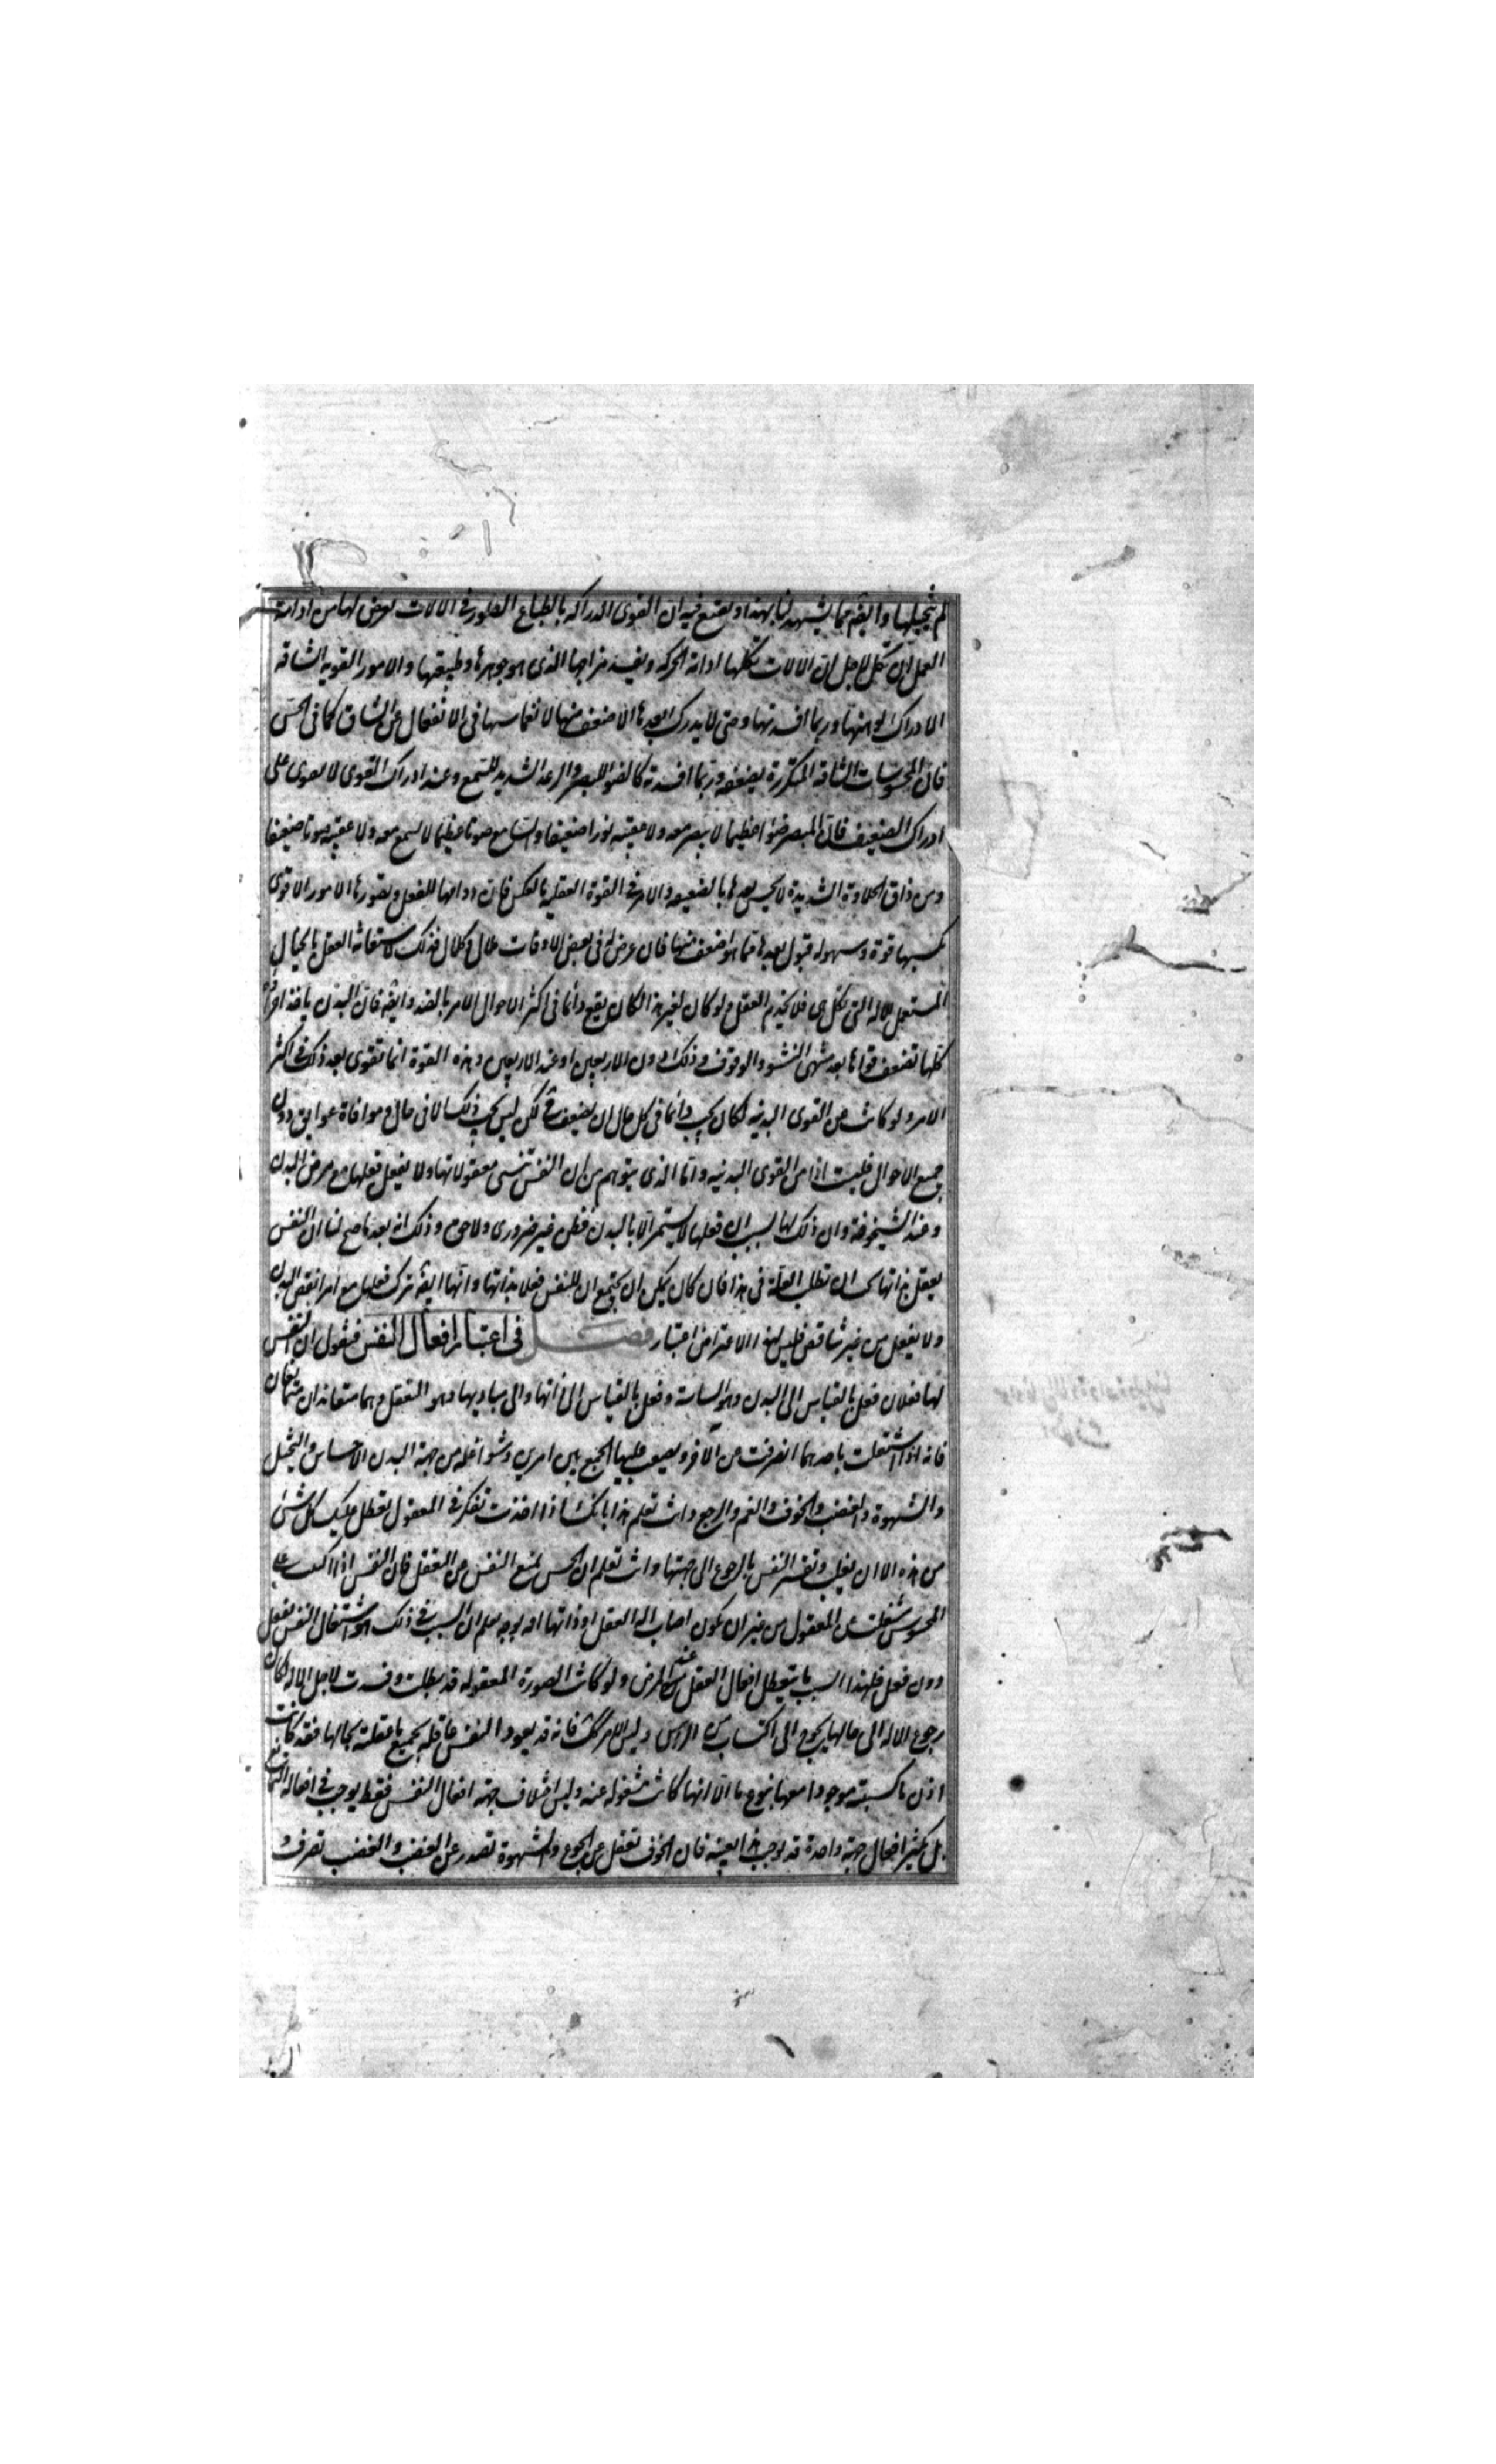 لم تخيلها وايضا مما يشهد لنا بهذا ويقنع فيه ان القوى الدراكه بالطباع الصور فى الالات يعرض لها من ادامة
العمل ان تكل لاجل ان الالات تكلها ادامة الحركه وتفسد مزاجها الذى هو جوهرها وطبيعتها والامور القويه الشاقه
الادراك توهنها وربما افسدتها وحتى لا يدرك بعدها الاضعف منها لانغماسها فى الانفعال عن الشاق كما فى الحس
فان المحسوسات الشاقه المتكررة يضعفه وربما افسدته كالضوء للبصر والرعد الشديد للسمع وعند ادراك القوى لا يقوى على
ادراك الضعيف فان المبصر ضوا عظيما لا يبصر معه ولا عقيبه نورا ضعيفا والسامع صوتا عظيما لا يسمع معه ولا عقيبه صوتا ضعيفا
ومن ذاق الحلاوة الشديدة لا يحس بعدها بالضعيفه والامر فى القوة العقلية بالعكس فان دوامها للفعل وتصورها الامور الاقوى
يكسبها قوة وسهوله قبول بعدها مما هو اضعف منها فان عرض لها فى بعض الاوقات ملال وكلال فذلك لاستعانة العقل بالخيال
المستعمل للاله التى تكل هى فلا يخدم العقل ولو كان لغير هذا لكان يقع دائما فى اكثر الاحوال الامر بالضد وايضا فان البدن ياخذ اجزاؤه
كلها تضعف قواها بعد منتهى النشو والوقوف وذلك دون الاربعين او عند الاربعين وهذه القوة انما تقوى بعد ذلك فى اكثر
الامر ولو كانت من القوى البدنيه لكان يجب دائما فى كل حال ان يضعف ح لكن ليس يجب ذلك الا فى حال وموافاة عوايق دون
جميع الاحوال فليست اذا من القوى البدنيه واما الذى يتوهم من ان النفس تنسى معقولاتها ولا يفعل فعلها مع مرض البدن
وعند الشيخوخة وان ذلك لها بسبب ان فعلها لا يستمر الا بالبدن فظن غير ضرورى ولا حق وذلك انه بعد ما صح لنا ان النفس
يعقل بذاتها يجب ان نطلب العلة فى هذا فان كان يمكن ان يجتمع ان للنفس فعلا بذاتها وانها ايضا تترك فعلها مع امراض البدن
ولا يفعل من غير تناقض فليس لهذا الاعتراض اعتبار فصل فى اعتبار افعال النفس فنقول ان النفس
لها فعلان فعل بالقياس الى البدن وهو السياسة وفعل بالقياس الى ذاتها والى مباديها وهو التعقل وهما متعاندان متمانعان
فانه اذا اشتغلت باحدهما انصرفت عن الاخر ويصعب عليها الجمع بين امرين وشواغله من جهة البدن الاحساس والتخيل
والشهوة والغضب والخوف والغم والوجع وانت تعلم هذا بانك اذا اخذت تفكر فى المعقول تعطل عليك كل شئ
من هذه الا ان يغلب وتقسر النفس بالرجوع الى جهتها وانت تعلم ان الحس يمنع النفس عن التعقل فان النفس اذا اكبت على
المحسوس شغلت عن المعقول من غير ان يكون اصاب اله العقل او ذاتها افه بوجه يعلم ان السبب فى ذلك هو اشتغال النفس بفعل
دون فعل فلهذا السبب ما يتعطل افعال العقل عند المرض ولو كانت الصورة المعقوله قد بطلت وفسدت لاجل الاله لكان
رجوع الاله الى حالها يحوج الى اكتساب من الراس وليس الامر كذلك فانه قد يعود النفس عاقله بجميع ما عقلته بحالها فقد كانت
اذن ما كسبته موجودا معها بنوع ما الا انها كانت مشغوله عنه وليس اختلاف جهة افعال النفس فقط يوجب فى افعاله التمانع
بل تكثير افعال جهة واحدة قد يوجب هذا بعينه فان الخوف تغفل عن الجوع والشهوة تصدر عن الغضب والغضب تصرف